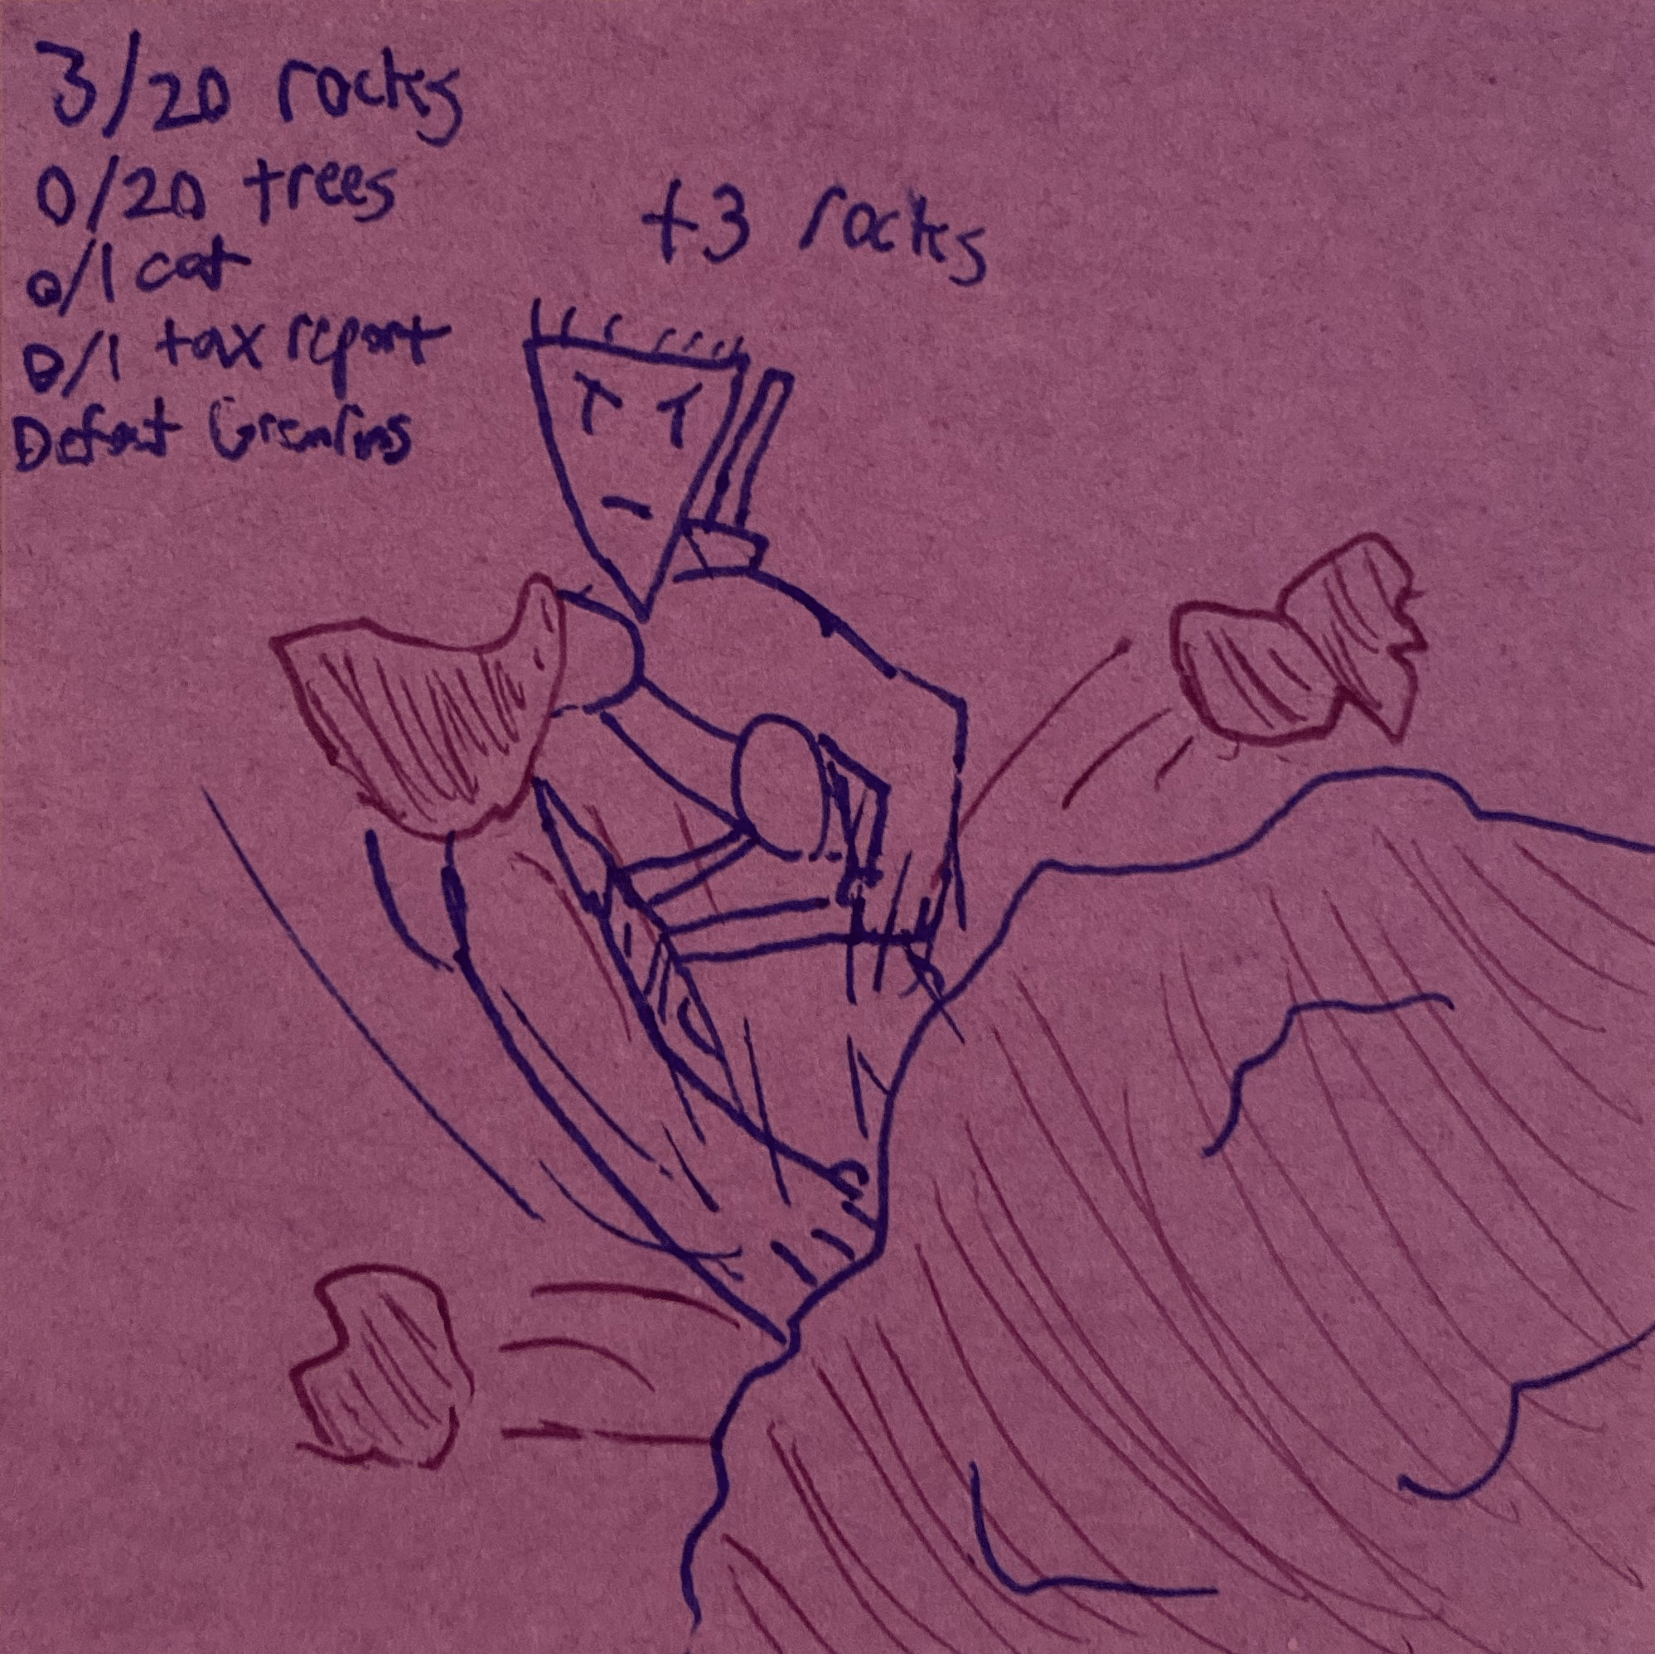 3/20 rocks
0/20 trees
0/1 cat
0/1 tax report
Defeat Gremlins
+3 rocks